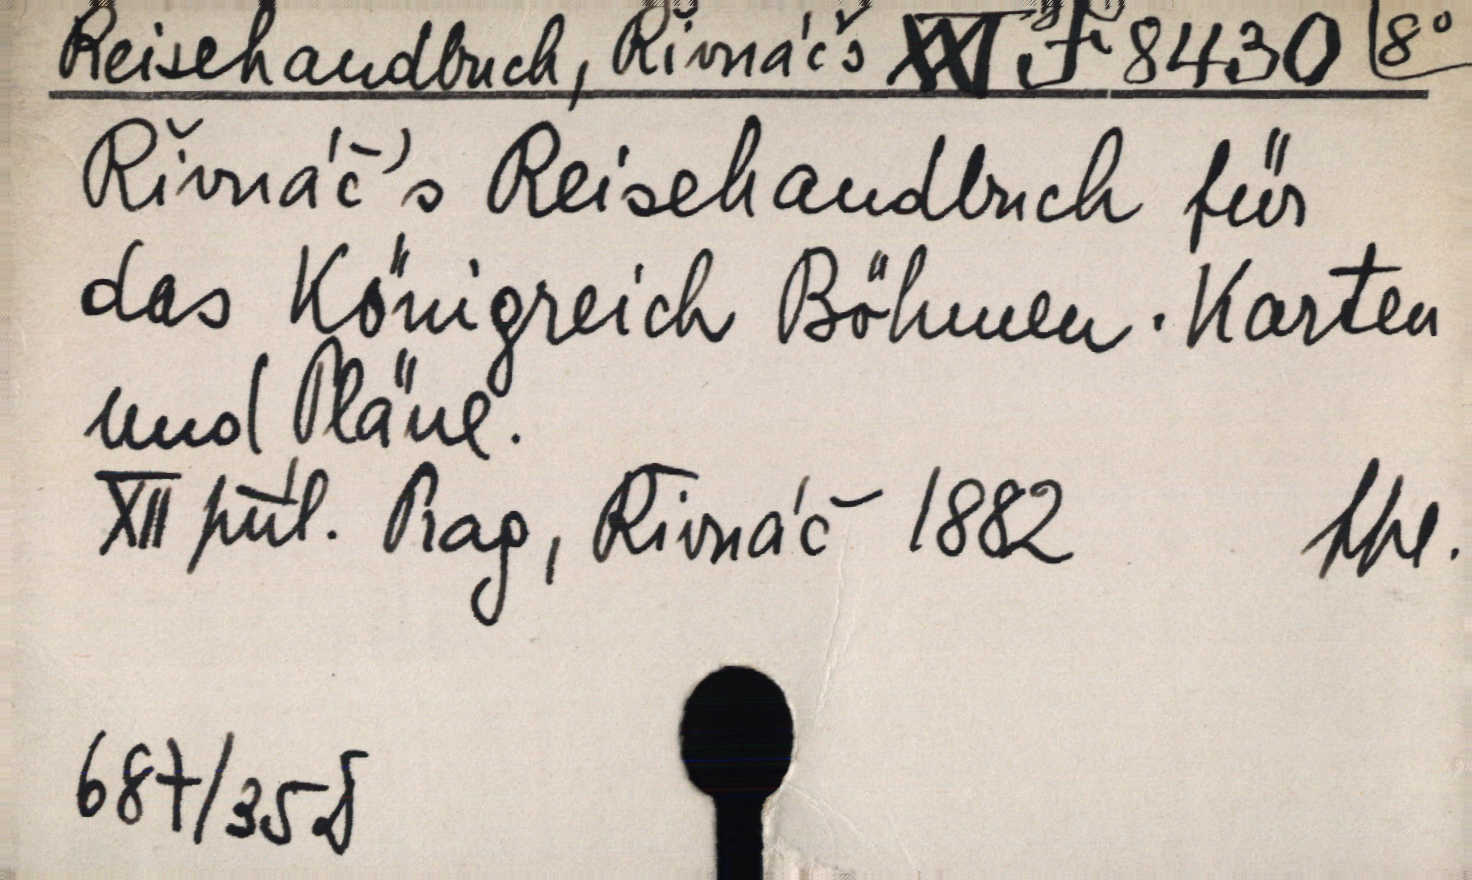 Reisehandbuch, Řivnáč's XXI F 8430 8°
Řivnáč's Reisehandbuch für
das Königreich Böhmen. Karten
und Pläne.
XII půl. Prag, Řivnáč 1882
687/35